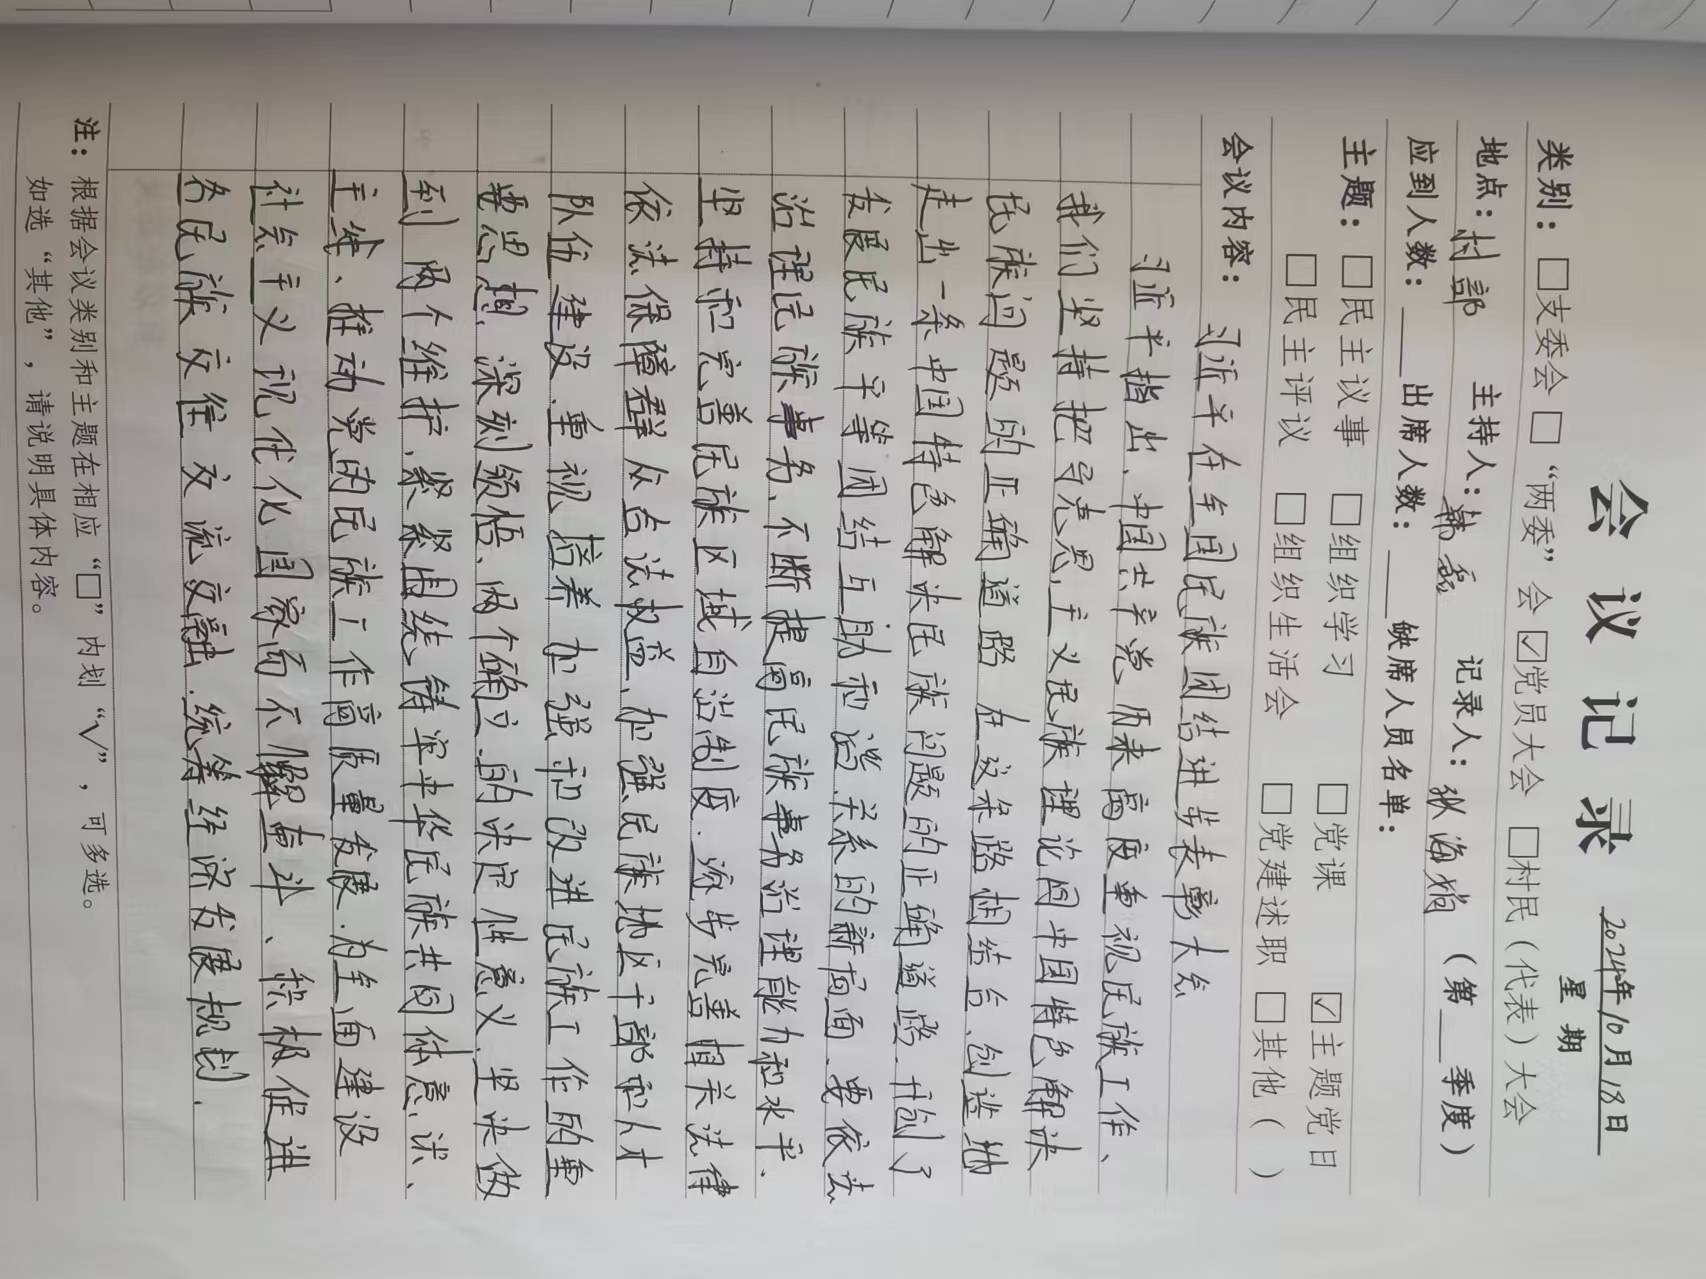 会议记录
2024年10月18日
星期
类别：□支委会 □“两委”会 ☑党员大会 □村民（代表）大会
地点：村部 主持人：韩磊 记录人：纵海娟 （第__季度）
应到人数：___出席人数：___缺席人员名单：
主题：□民主议事 □组织学习 □党课 ☑主题党日
□民主评议 □组织生活会 □党建述职 □其他（ ）
会议内容：
习近平在全国民族团结进步表彰大会
习近平指出、中国共产党历来高度重视民族工作、
我们坚持把马克思主义民族理论同中国特色解决
民族问题的正确道路 在这条路相结合、创造地
走出一条中国特色解决民族问题的正确道路、开创了
发展民族平等团结互助和谐关系的新局面、要依法
治理民族事务、不断提高民族事务治理能力和水平、
坚持和完善民族区域自治制度.逐步完善相关法律
依法保障群众合法权益、加强民族地区干部和人才
队伍建设、重视培养加强和改进民族工作的重
要思想、深刻领悟、两个确立的决定性意义、坚决做
到 两个维护、紧紧围绕、铸牢中华民族共同体意识、
主线、推动党的民族工作高质量发展.为全面建设
社会主义现代化国家而不懈奋斗、积极促进
各民族交往交流交融.统筹经济发展规划.
注：根据会议类别和主题在相应“□”内划“√”，可多选。
如选“其他”，请说明具体内容。